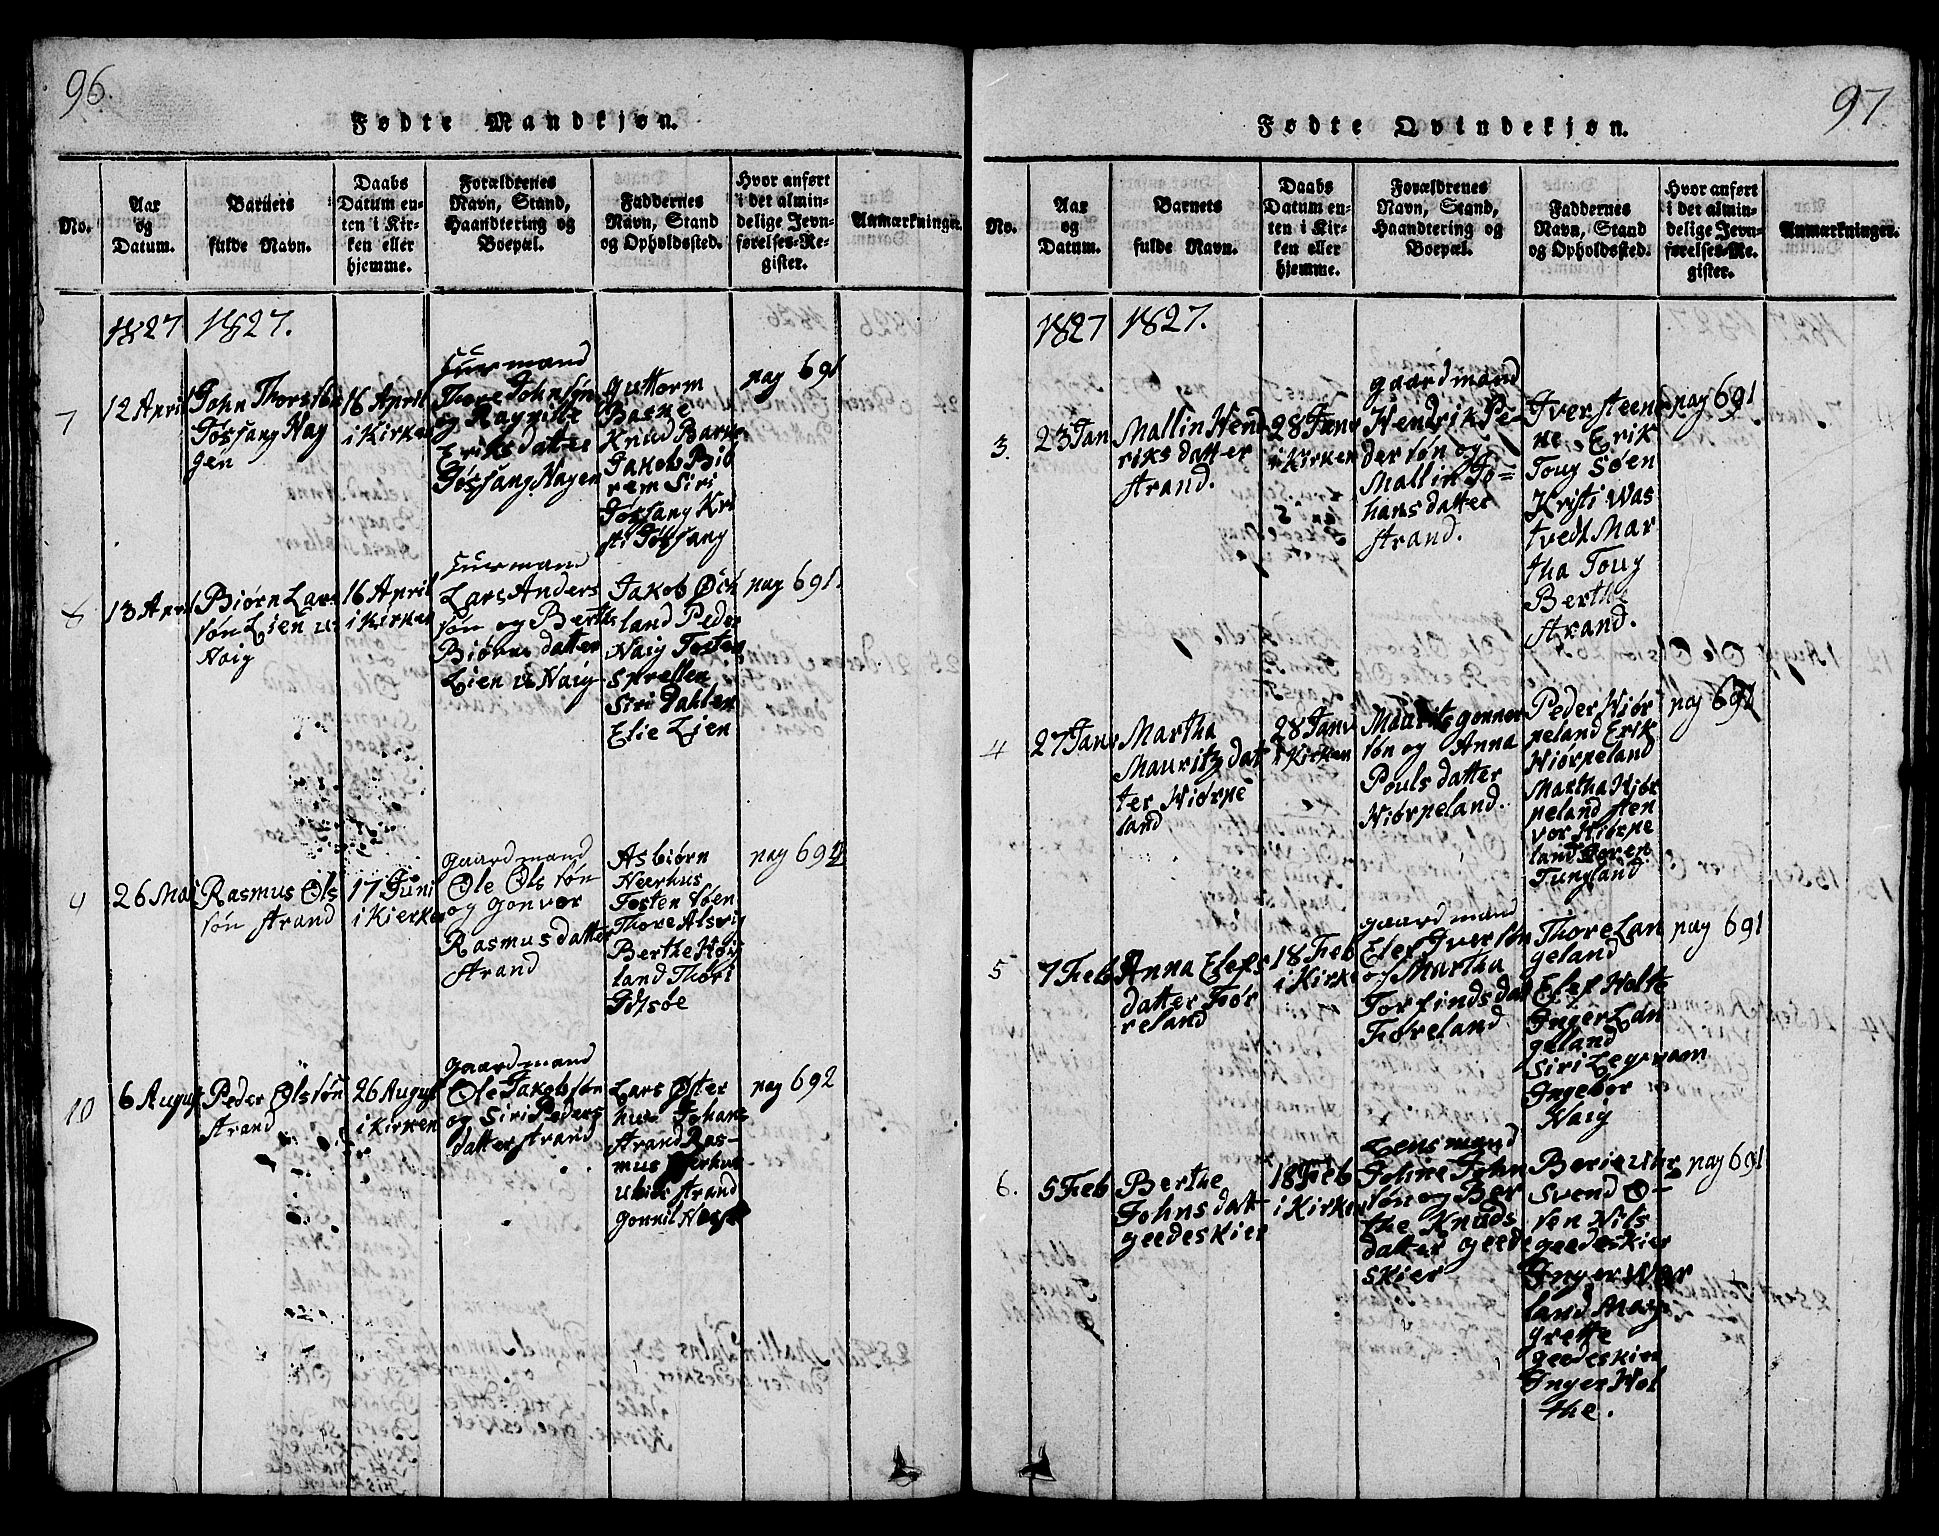 96.
Fødte Mandkjøn.
No.
Aar
og
Datum.
Barnets
fulde Navn.
Daabs
Datum en-
ten i Kir-
ken eller
hjemme.
Forældrenes
Navn, Stand,
Haandtering og
Boepæl.
Faddernes
Navn, Stand
og Opholdssted.
Hvor anført
i det almin-
delige Jevn-
førelses-Re-
gister.
Anmærkninger.
1827
1827.
7
12 April
John Thoresøn
Tøssang Hag
gen
16 April
i Kirken
Huusmand
Thore Johnsøn
og Ragnille
Eriksdatter
Tøssang Hagen
Guttorm
Barke
Knud Barke
Jakob Biø
rem Siri
Tøssang Kri
sti Tøssang
pag 691
8
13 April
Biørn Lars
søn Lien u:
Naig
16 April
i Kirken
Huusmand
Lars Anders
søn og Berthe
Biørns datter
Lien u: Naig
Jakob Øck
land Peder
Naig Tosten
Siri Dahlen
Elie Lien
pag 691
9
26 Mai
Rasmus Ols
søn Strand
17 Juni
i Kierken
Gaardmand
Ole Olssøn
og Gonvor
Rasmusdatter
Strand
Asbiørn
Neerhus
Tosten Søen
Thore Alsvig
Berthe Høj
land Thori
Idsøe
pag 692
10
6 August
Peder Olssøn
Strand
26 August
i Kirken
Gaardmand
Ole Jakobsøn
og Siri Peders
datter Strand
Lars Øster
hus Johans
Strand Ras-
mus
Strand
Gonnil
pag 692
97
Fødte Qvindekjøn.
No.
Aar
og
Datum.
Barnets
fulde Navn.
Daabs
Datum en-
ten i Kir-
ken eller
hjemme.
Forældrenes
Navn, Stand,
Haandtering og
Boepæl.
Faddernes
Navn, Stand
og Opholdssted.
Hvor anført
i det almin-
delige Jevn-
førelses-Re-
gister.
Anmærkninger.
1827
1827.
3.
23 Jan
Mallin Hend
riksdatter
Strand.
28 Janv
i Kirken
Gaardmand
Hendrik Pe-
dersøn og
Mallin Jo-
hansdatter
Strand.
Iver Steene
ne Erik
Toug Søen
Kristi Was
tvedt Mar
tha Toug
Berthe
Strand.
pag 691
4
27 Janv
Martha
Mauritzdat
ter Hiørpe
land
28 Janv
i Kirken
Maurits Gonner
søn og Anna
Pouls datter
Hiørpeland.
Peder Hiør
peland Erik
Hiørpeland
Martha Hiør
peland Sten
vor Hiørpe
land Søren
Tungland
pag 691
5
7 Feb
Anna Elefs
datter Før
reland
18 Feb
i Kirken
Gaardmand
Elef Iversøn
og Martha
Torfinds dat
Føreland
Thore Lan
geland
Elef Holte
Inger Lan
geland
Siri Legernam
Ingebor
Naig
pag 691
6.
5 Feb
Berthe
Johns dat-
Geedeskier
18 Feb
i Kirken
Lensmand
John
søn og Ber
the Knuds
datter Geede
skier
Svend Ø-
ven Nils
Geedeskier
Inger
land Mar
grette
Geedeskier
Inger Hol
the.
pag 691